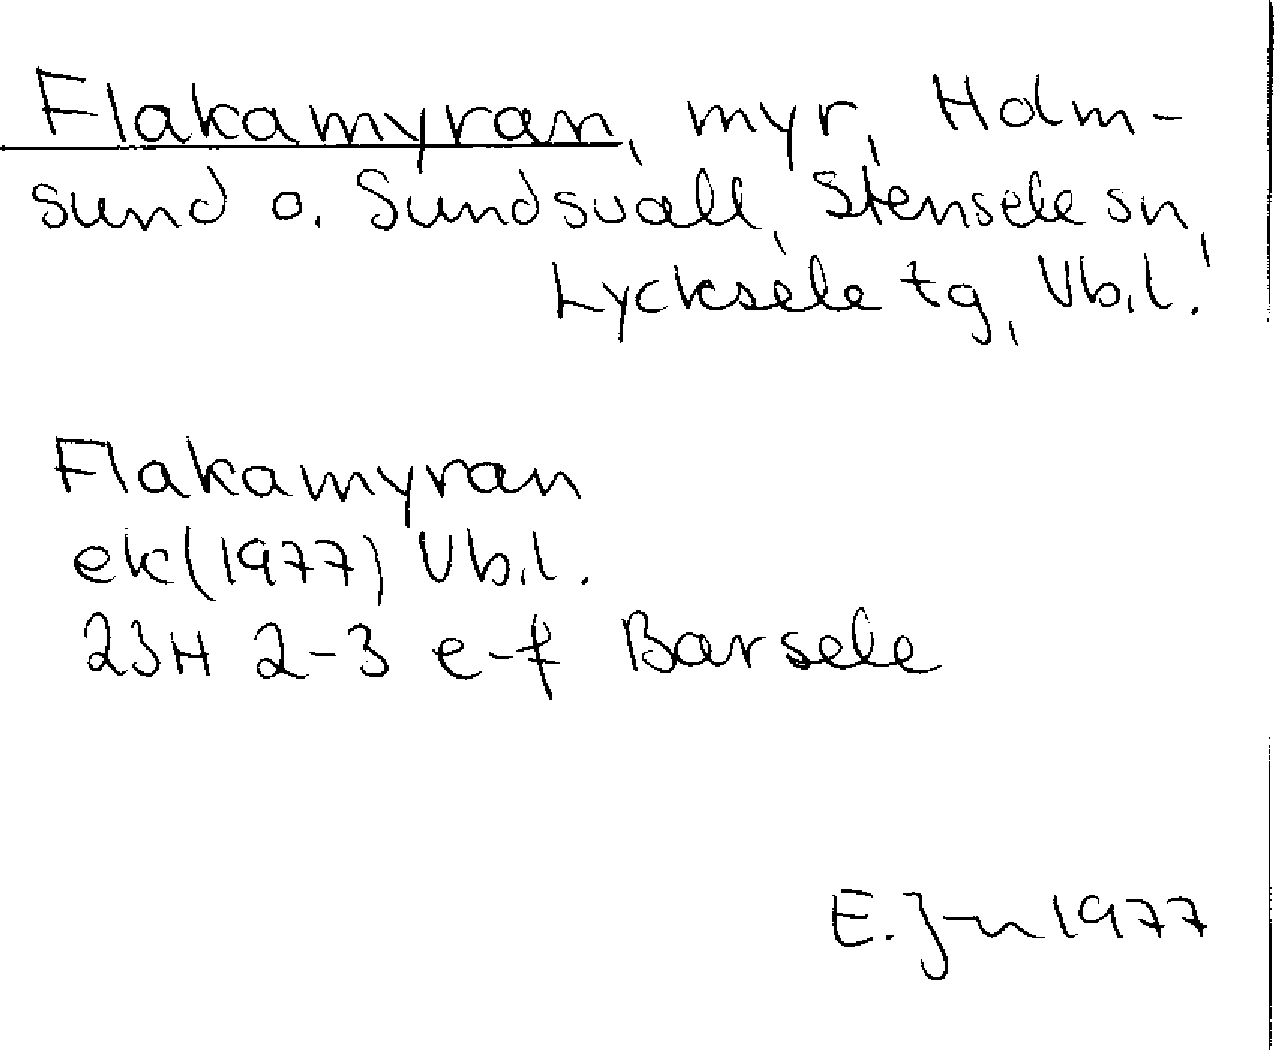 Flakamyran, myr, Holm-
sund o. Sundsvall, Stensele sn,
Lycksele tg, Vb.l.
Flakamyran
ek(1977) Vb.l.
23H 2-3 e-f Barsele
E. J-n 1977